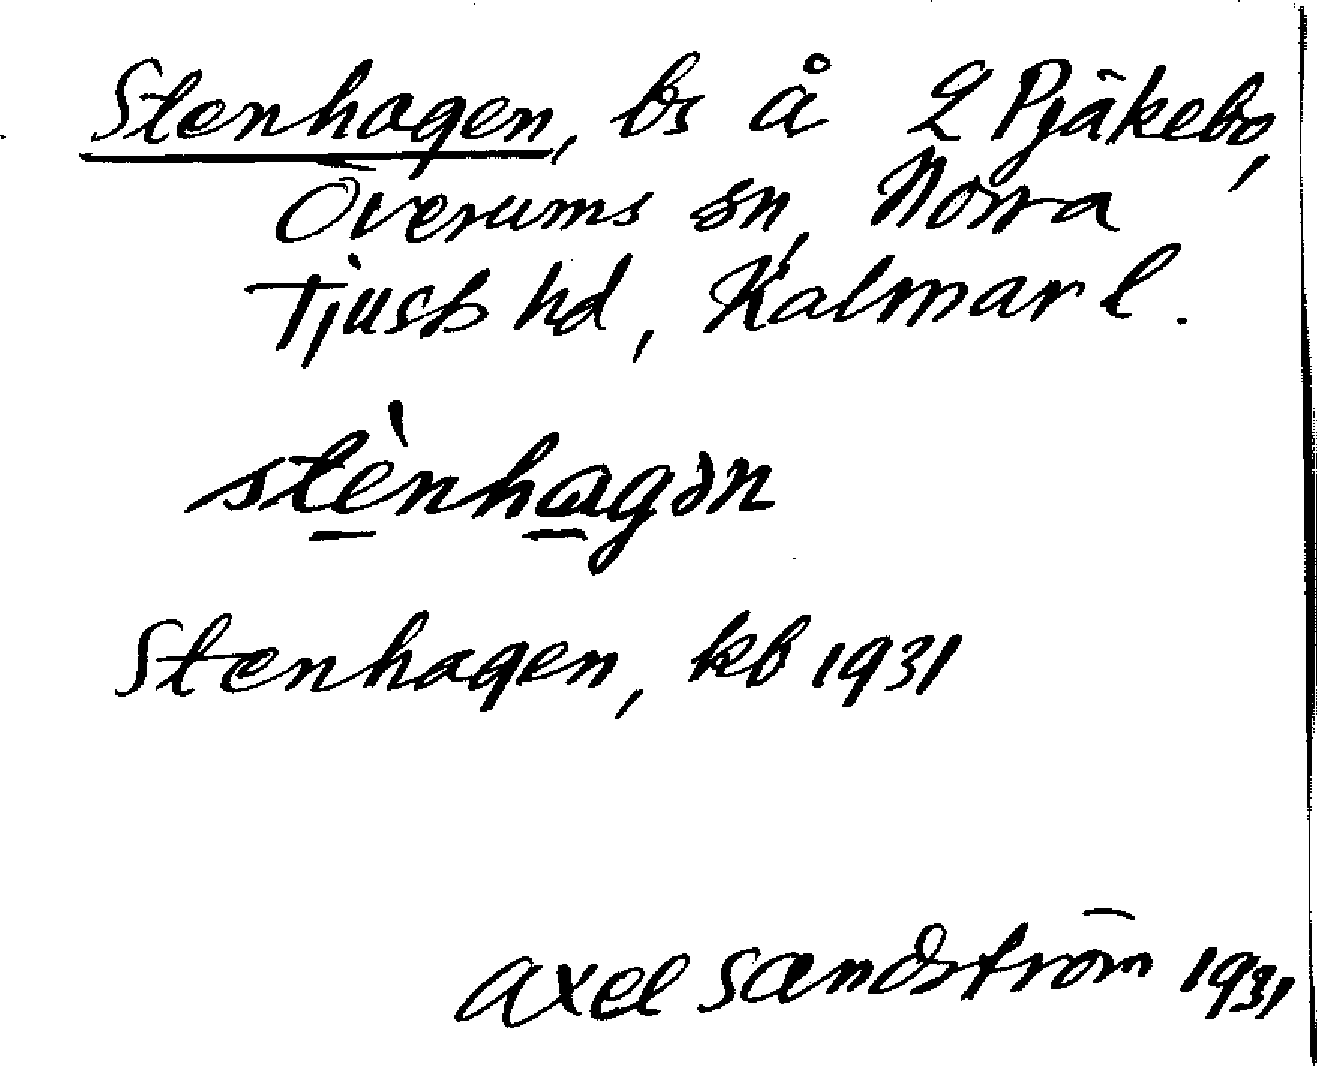 Stenhagen, bs å 2 Pjäkebo,
Överums sn, Norra
Tjusts hd, Kalmar l.
stènhagən
Stenhagen, kb 1931
Axel Sandström 1931